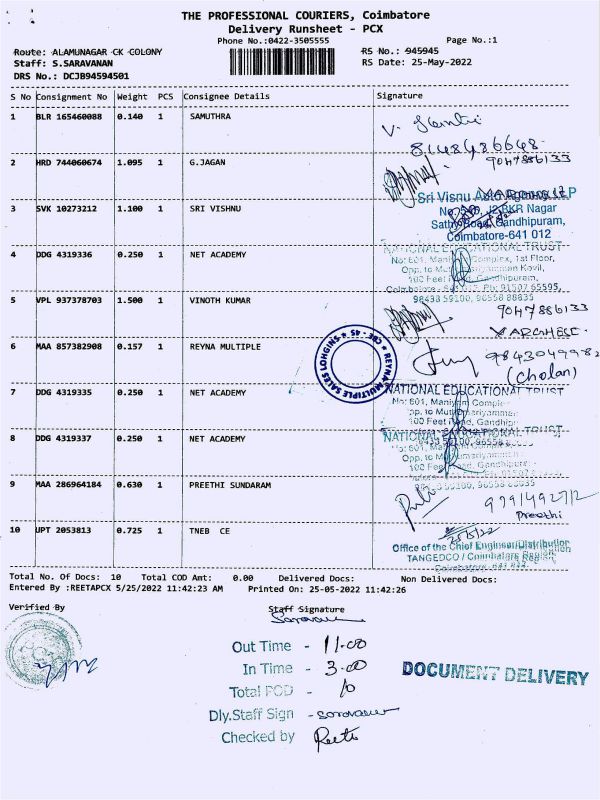 THE PROFESSIONAL COURIERS, Coimbatore
Delivery Runsheet - PCX
Phone No.:0422-3505555 Page No.:1
Route: ALAMUNAGAR CK COLONY RS No.: 945945
Staff: S.SARAVANAN RS Date: 25-May-2022
DRS No.: DCJB94594501
S No Consignment No Weight PCS Consignee Details Signature
1 BLR 165460088 0.140 1 SAMUTHRA
8148486648
2 HRD 744060674 1.095 1 G.JAGAN 9047886133
VARGHESE
Sri Visnu Auto Agencies LLP
3 SVK 10273212 1.100 1 SRI VISHNU
RKR Nagar
Sathy Road, Gandhipuram,
Coimbatore-641 012
NATIONAL EDUCATIONAL TRUST
4 DDG 4319336 0.250 1 NET ACADEMY
No: 601, Complex, 1st Floor,
Kovil,
100 Feet Gandhipuram,
98433 59100, 96558 88835
5 VPL 937378703 1.500 1 VINOTH KUMAR 9047886133
VARGHESE
6 MAA 857382908 0.157 1 REYNA MULTIPLE
(Cholan)
REYNA MULTIPLE SALES CBE - 45
7 DDG 4319335 0.250 1 NET ACADEMY NATIONAL EDUCATIONAL TRUST
8 DDG 4319337 0.250 1 NET ACADEMY NATIONAL EDUCATIONAL TRUST
9 MAA 286964184 0.630 1 PREETHI SUNDARAM
Preethi
10 UPT 2053813 0.725 1 TNEB CE
25/5/22
Office of the Chief Engineer/Distribution
TANGEDCO / Coimbatore Region
Total No. Of Docs: 10 Total COD Amt: 0.00 Delivered Docs: Non Delivered Docs:
Entered By :REETAPCX 5/25/2022 11:42:23 AM Printed On: 25-05-2022 11:42:26
Verified By Staff Signature
Out Time - 11-00
In Time - 3-00
Total POD - 10
DOCUMENT DELIVERY
Dly.Staff Sign -
Checked by